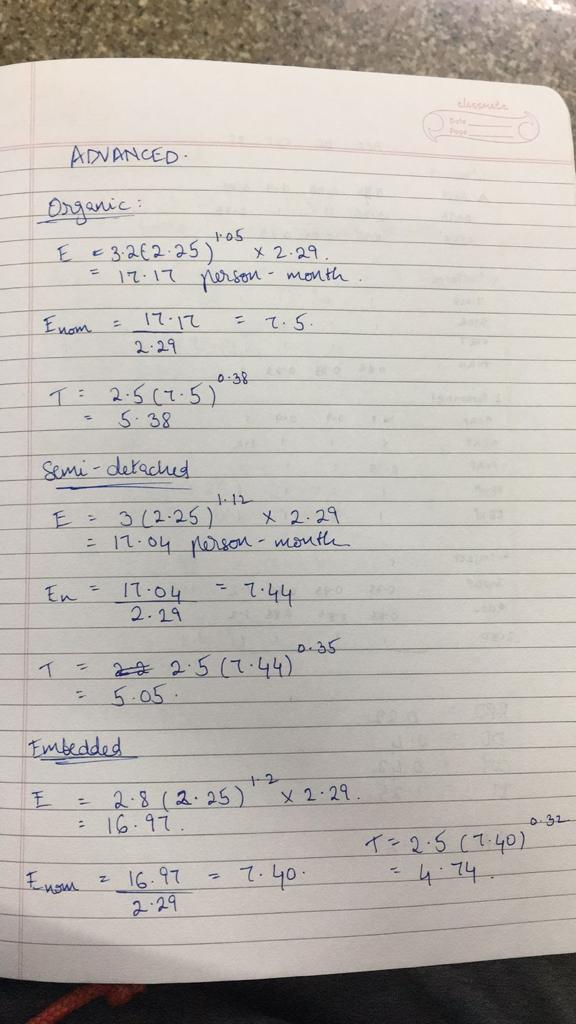 classmate
Date
Page
ADVANCED.
Organic:
E = 3.2(2.25)^1.05 × 2.29.
= 17.17 person-month.
Enom = 17.17 / 2.29 = 7.5.
T = 2.5(7.5)^0.38
= 5.38
Semi-detached
E = 3(2.25)^1.12 × 2.29
= 17.04 person-month
En = 17.04 / 2.29 = 7.44
T = 2.5(7.44)^0.35
= 5.05.
Embedded
E = 2.8(2.25)^1.2 × 2.29.
= 16.97.
Enom = 16.97 / 2.29 = 7.40.
T = 2.5(7.40)^0.32
= 4.74.